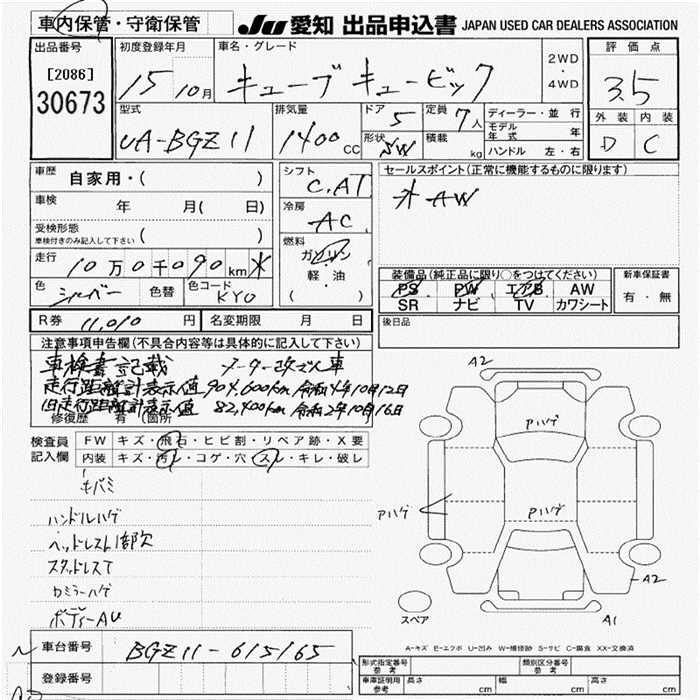 車内保管・守衛保管
JU 愛知 出品申込書 JAPAN USED CAR DEALERS ASSOCIATION
出品番号
[2086]
30673
初度登録年月
15 10月
車名・グレード
キューブキュービック
2WD・4WD
評価点
3.5
外装 内装
D C
型式
UA-BGZ11
排気量
1400cc
ドア
5
形状
SW
定員
7人
積載
kg
ディーラー・並行
モデル年式 年
ハンドル 左・右
車歴
自家用・( )
車検
年 月( 日)
受検形態
車検付きのみ記入して下さい ( )
走行
10万0千090km
色
シルバー
色替
色コード
KYO
シフト
C.AT
冷房
AC
燃料
ガソリン
軽・油
( )
セールスポイント(正常に機能するものに限ります)
AW
装備品(純正品に限り○をつけてください)
PS PW エアB AW
SR ナビ TV カワシート
新車保証書
有・無
後日品
R券 11,010円
名変期限 月 日
注意事項申告欄(不具合内容等は具体的に記入して下さい)
車検書記載 メーター改ざん車
走行距離計表示値 904,600km 令和4年10月12日
旧走行距離計表示値 82,400km 令和2年10月16日
修復歴 有(箇所
検査員記入欄
FW キズ・飛石・ヒビ割・リペア跡・X要
内装 キズ・汚レ・コゲ・穴・スレ・キレ・破レ
キバミ
ハンドルハゲ
ヘッドレスト1部欠
スタッドレスT
カミラーハゲ
ボディーAU
車台番号
BGZ11-615165
登録番号
A2
アハゲ
アハゲ
アハゲ
A2
A1
スペア
A-キズ E-エクボ U-凹み W-補修跡 S-サビ C-腐食 XX-交換済
形式指定番号 参考
類別区分番号 参考
車庫証明用 参考
長さ cm
幅 cm
高さ cm